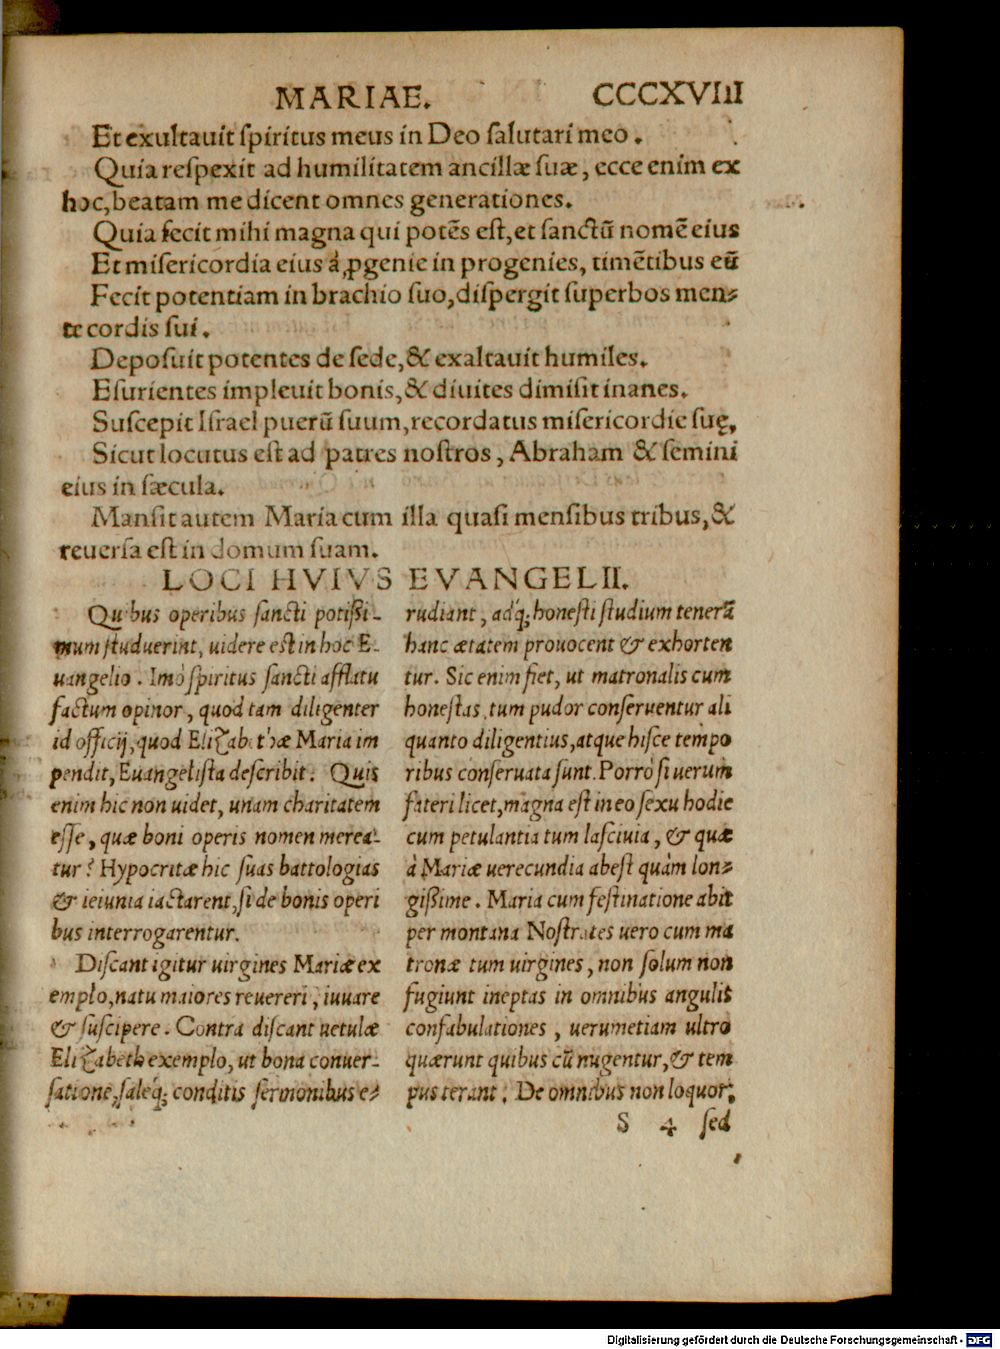 MARIAE. CCCXVIII
Et exultauit spiritus meus in Deo salutari meo.
Quia respexit ad humilitatem ancillæ suæ, ecce enim ex
hoc, beatam me dicent omnes generationes.
Quia fecit mihi magna qui potēs est, et sanctū nomē eius
Et misericordia eius á ꝓgenie in progenies, timētibus eū
Fecit potentiam in brachio suo, dispergit superbos men⸗
te cordis sui.
Deposuit potentes de sede, & exaltauit humiles.
Esurientes impleuit bonis, & diuites dimisit inanes.
Suscepit Israel puerū suum, recordatus misericordie suę,
Sicut locutus est ad patres nostros, Abraham & semini
eius in sæcula.
Mansit autem Maria cum illa quasi mensibus tribus, &
reuersa est in domum suam.
LOCI HVIVS EVANGELII.
Quibus operibus sancti potissi-
mum studuerint, uidere est in hoc E-
uangelio. Imò spiritus sancti afflatu
factum opinor, quod tam diligenter
id officij, quod Elizabethæ Maria im
pendit, Euangelista describit. Quis
enim hic non uidet, unam charitatem
esse, quæ boni operis nomen merea-
tur? Hypocritæ hic suas battologias
& ieiunia iactarent, si de bonis operi
bus interrogarentur.
Discant igitur uirgines Mariæ ex
emplo, natu maiores reuereri, iuuare
& suscipere. Contra discant uetulæ
Elizabeth exemplo, ut bona conuer-
satione, saleq́; conditis sermonibus e⸗
rudiant, adq́; honesti studium tenerā
hanc ætatem prouocent & exhorten
tur. Sic enim fiet, ut matronalis cum
honestas, tum pudor conseruentur ali
quanto diligentius, atque hisce tempo
ribus conseruata sunt. Porrò si uerum
fateri licet, magna est in eo sexu hodie
cum petulantia tum lasciuia, & quæ
à Mariæ uerecundia abest quàm lon⸗
gissime. Maria cum festinatione abit
per montana Nostrates uero cum ma
tronæ tum uirgines, non solum non
fugiunt ineptas in omnibus angulis
confabulationes, uerumetiam ultro
quærunt quibus cū nugentur, & tem
pus terant. De omnibus non loquor,
S 4 sed
Digitalisierung gefördert durch die Deutsche Forschungsgemeinschaft - DFG